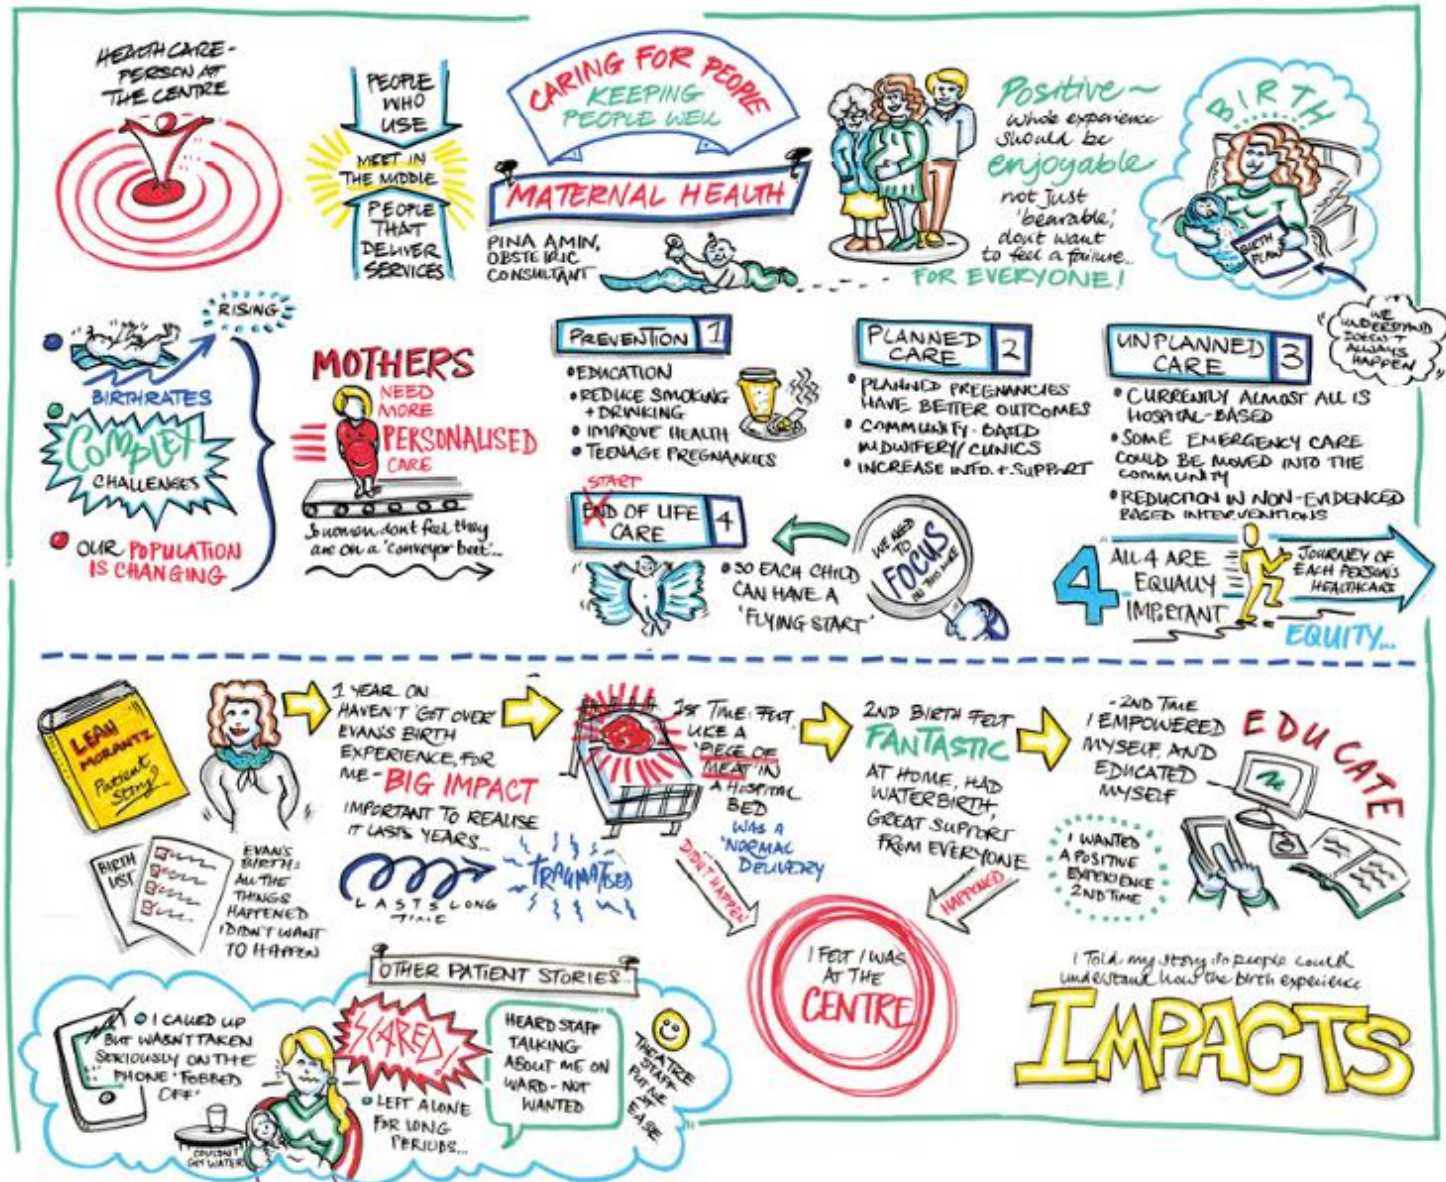 HEALTH CARE -
PERSON AT
THE CENTRE
PEOPLE
WHO
USE
MEET IN
THE MIDDLE
PEOPLE
THAT
DELIVER
SERVICES
CARING FOR PEOPLE
KEEPING
PEOPLE WELL
MATERNAL HEALTH
PINA AMIN,
OBSTETRIC
CONSULTANT
Positive ~
whole experience
should be
enjoyable
not just
'bearable,'
dont want
to feel a failure...
FOR EVERYONE!
BIRTH
BIRTH
PLAN
"WE
UNDERSTAND
DOESN'T
ALWAYS
HAPPEN"
RISING
BIRTHRATES
COMPLEX
CHALLENGES
OUR POPULATION
IS CHANGING
MOTHERS
NEED
MORE
PERSONALISED
CARE
So women dont feel they
are on a 'conveyor belt'...
PREVENTION 1
• EDUCATION
• REDUCE SMOKING
+ DRINKING
• IMPROVE HEALTH
• TEENAGE PREGNANCIES
PLANNED
CARE 2
• PLANNED PREGNANCIES
HAVE BETTER OUTCOMES
• COMMUNITY-BASED
MIDWIFERY/CLINICS
• INCREASE INFO. + SUPPORT
UNPLANNED
CARE 3
• CURRENTLY ALMOST ALL IS
HOSPITAL-BASED
• SOME EMERGENCY CARE
COULD BE MOVED INTO THE
COMMUNITY
• REDUCTION IN NON-EVIDENCED
BASED INTERVENTIONS
START
END OF LIFE
CARE 4
• SO EACH CHILD
CAN HAVE A
'FLYING START'
WE NEED
TO
FOCUS
4 ALL 4 ARE
EQUALLY
IMPORTANT
JOURNEY OF
EACH PERSON'S
HEALTHCARE
EQUITY...
LEAH
MORANTZ
Patient
Story
1 YEAR ON
HAVEN'T GOT OVER
EVAN'S BIRTH
EXPERIENCE, FOR
ME - BIG IMPACT
IMPORTANT TO REALISE
IT LASTS YEARS...
LASTS LONG
TIME
TRAUMATISED
BIRTH
LIST
EVAN'S
BIRTH:
ALL THE
THINGS
HAPPENED
I DIDN'T WANT
TO HAPPEN
1st TIME: FELT
LIKE A
'PIECE OF
MEAT' IN
A HOSPITAL
BED
WAS A
'NORMAL
DELIVERY
DIDN'T HAPPEN
2ND BIRTH FELT
FANTASTIC
AT HOME, HAD
WATERBIRTH,
GREAT SUPPORT
FROM EVERYONE
HAPPENED
I FELT I WAS
AT THE
CENTRE
- 2ND TIME
I EMPOWERED
MYSELF, AND
EDUCATED
MYSELF
EDUCATE
I WANTED
A POSITIVE
EXPERIENCE
2ND TIME
I Told my story so people could
understand how the birth experience
IMPACTS
OTHER PATIENT STORIES...
• I CALLED UP
BUT WASN'T TAKEN
SERIOUSLY ON THE
PHONE 'FOBBED
OFF'
COULDN'T
GET WATER
SCARED!
• LEFT ALONE
FOR LONG
PERIODS...
HEARD STAFF
TALKING
ABOUT ME ON
WARD - NOT
WANTED
THEATRE
STAFF
PUT ME
AT
EASE